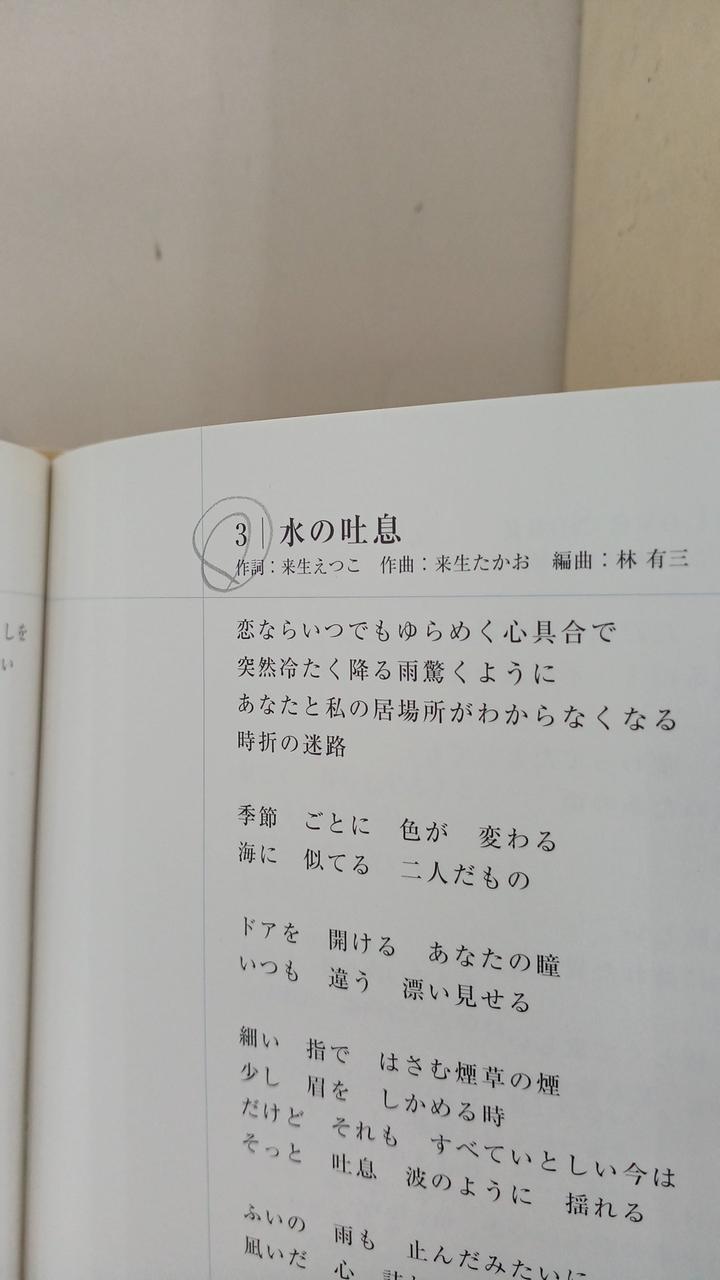 しを
い
3 | 水の吐息
作詞：来生えつこ　作曲：来生たかお　編曲：林 有三
恋ならいつでもゆらめく心具合で
突然冷たく降る雨驚くように
あなたと私の居場所がわからなくなる
時折の迷路
季節　ごとに　色が　変わる
海に　似てる　二人だもの
ドアを　開ける　あなたの瞳
いつも　違う　漂い見せる
細い　指で　はさむ煙草の煙
少し　眉を　しかめる時
だけど　それも　すべていとしい今は
そっと　吐息　波のように　揺れる
ふいの　雨も　止んだみたいに
凪いだ　心